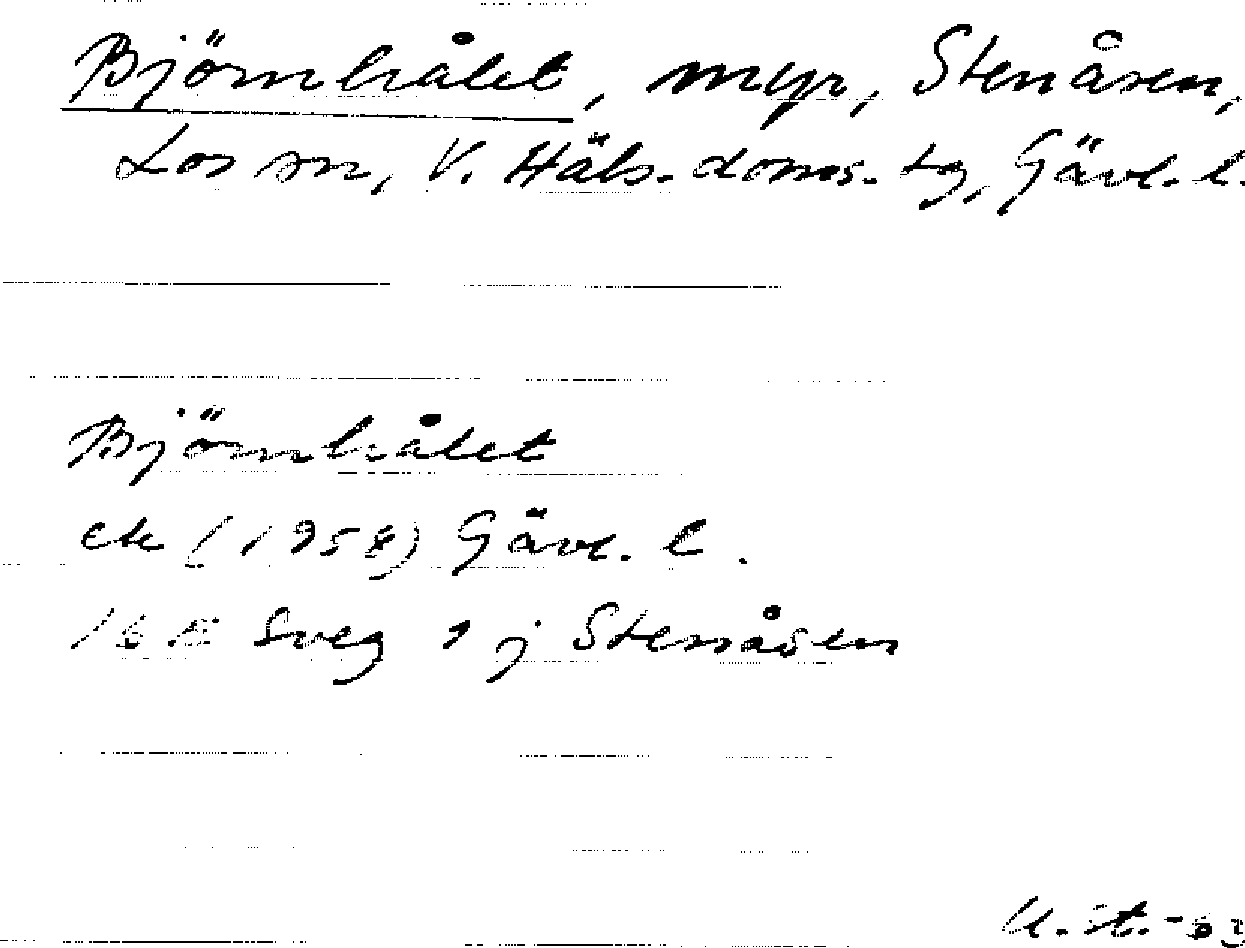 Björnhålet, myr, Stenåsen,
Los sn, V. Häls. doms. tg, Gävl. l.
Björnhålet
ek (1958) Gävl. l.
16 E Sveg 1 j Stenåsen
U. st. - 63